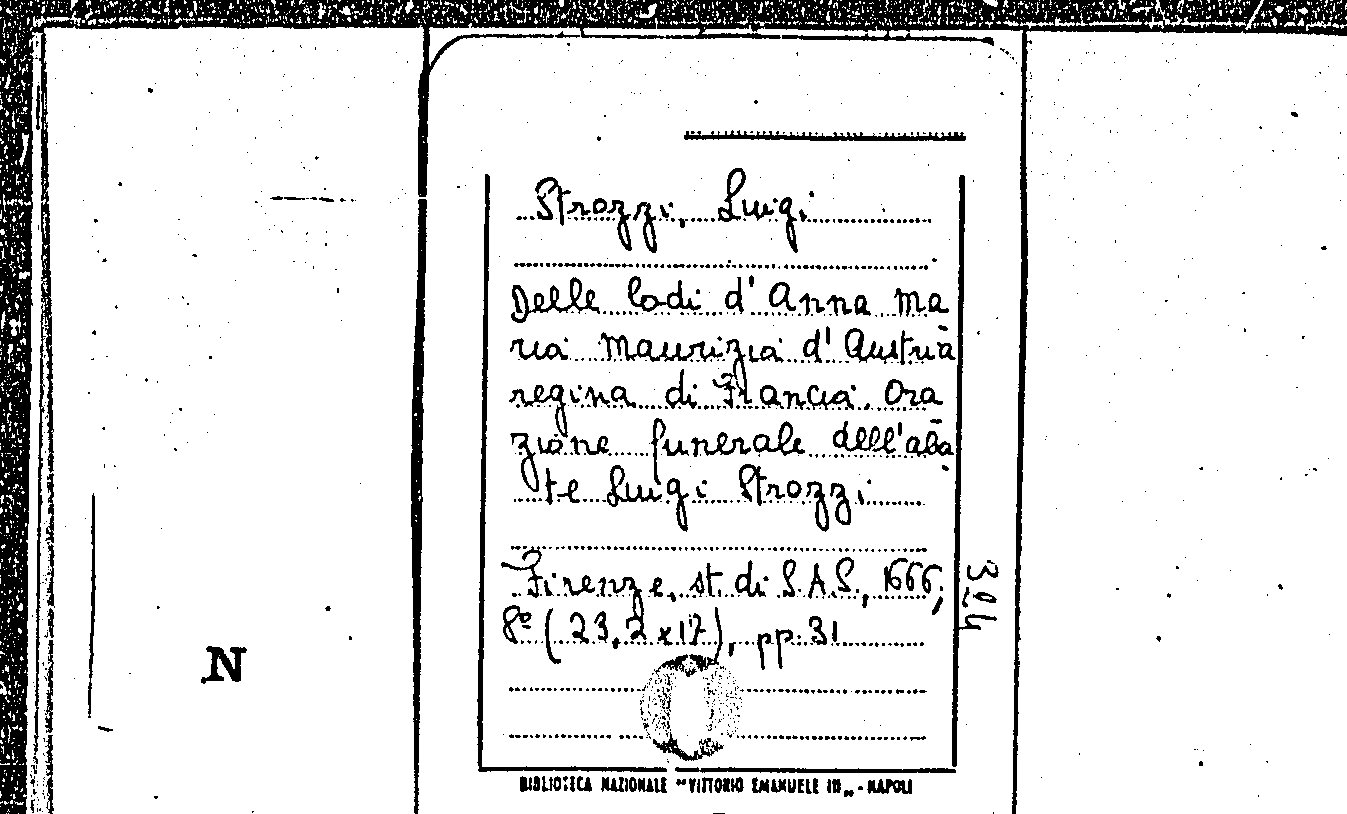 Strozzi, Luigi
Delle lodi d'Anna Ma
ria Maurizia d'Austria
regina di Francia. Ora
zione funerale dell'aba
te Luigi Strozzi
Firenze, st. di S.A.S., 1666;
8º (23,2 x 17), pp. 31
324
N
BIBLIOTECA NAZIONALE "VITTORIO EMANUELE III„ - NAPOLI